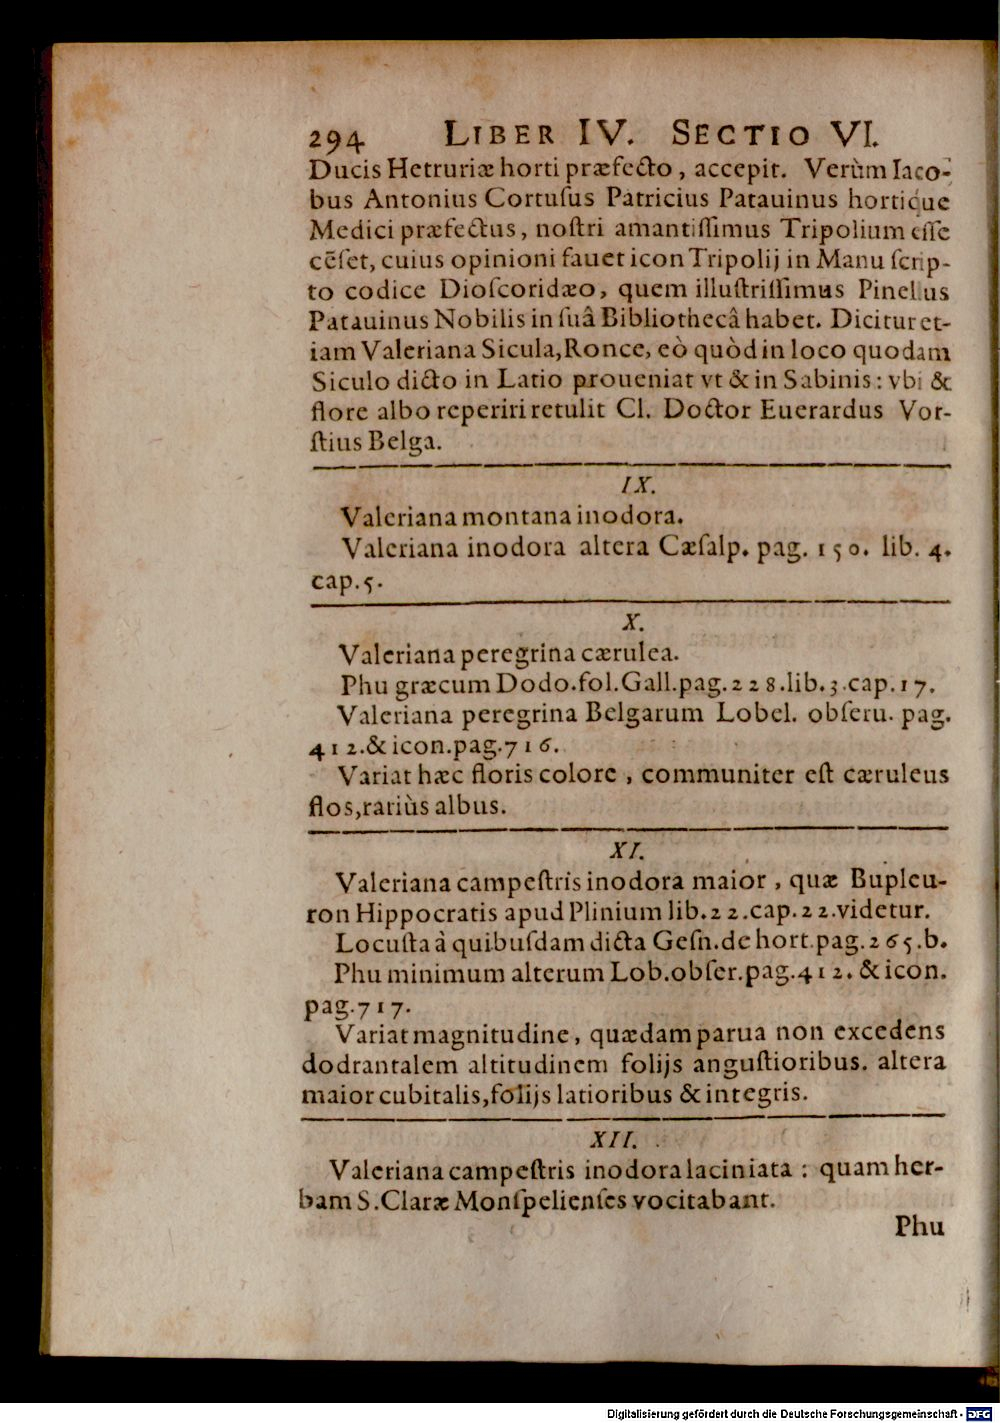 294 LIBER IV. SECTIO VI.
Ducis Hetruriæ horti præfecto, accepit. Verùm Iaco-
bus Antonius Cortuſus Patricius Patauinus hortique
Medici præfectus, noſtri amantiſſimus Tripolium eſſe
cēſet, cuius opinioni fauet icon Tripolij in Manu ſcrip-
to codice Dioſcoridæo, quem illuſtriſſimus Pinellus
Patauinus Nobilis in ſuâ Bibliothecâ habet. Dicitur et-
iam Valeriana Sicula, Ronce, eò quòd in loco quodam
Siculo dicto in Latio proueniat vt & in Sabinis: vbi &
flore albo reperiri retulit Cl. Doctor Euerardus Vor-
ſtius Belga.
IX.
Valeriana montana inodora.
Valeriana inodora altera Cæſalp. pag. 150. lib. 4.
cap. 5.
X.
Valeriana peregrina cærulea.
Phu græcum Dodo. fol. Gall. pag. 228. lib. 3. cap. 17.
Valeriana peregrina Belgarum Lobel. obſeru. pag.
412. & icon. pag. 716.
Variat hæc floris colore, communiter eſt cæruleus
flos, rariùs albus.
XI.
Valeriana campeſtris inodora maior, quæ Bupleu-
ron Hippocratis apud Plinium lib. 22. cap. 22. videtur.
Locuſta à quibuſdam dicta Geſn. de hort. pag. 265. b.
Phu minimum alterum Lob. obſer. pag. 412. & icon.
pag. 717.
Variat magnitudine, quædam parua non excedens
dodrantalem altitudinem folijs anguſtioribus. altera
maior cubitalis, folijs latioribus & integris.
XII.
Valeriana campeſtris inodora laciniata: quam her-
bam S. Claræ Monſpelienſes vocitabant.
Phu
Digitalisierung gefördert durch die Deutsche Forschungsgemeinschaft - DFG